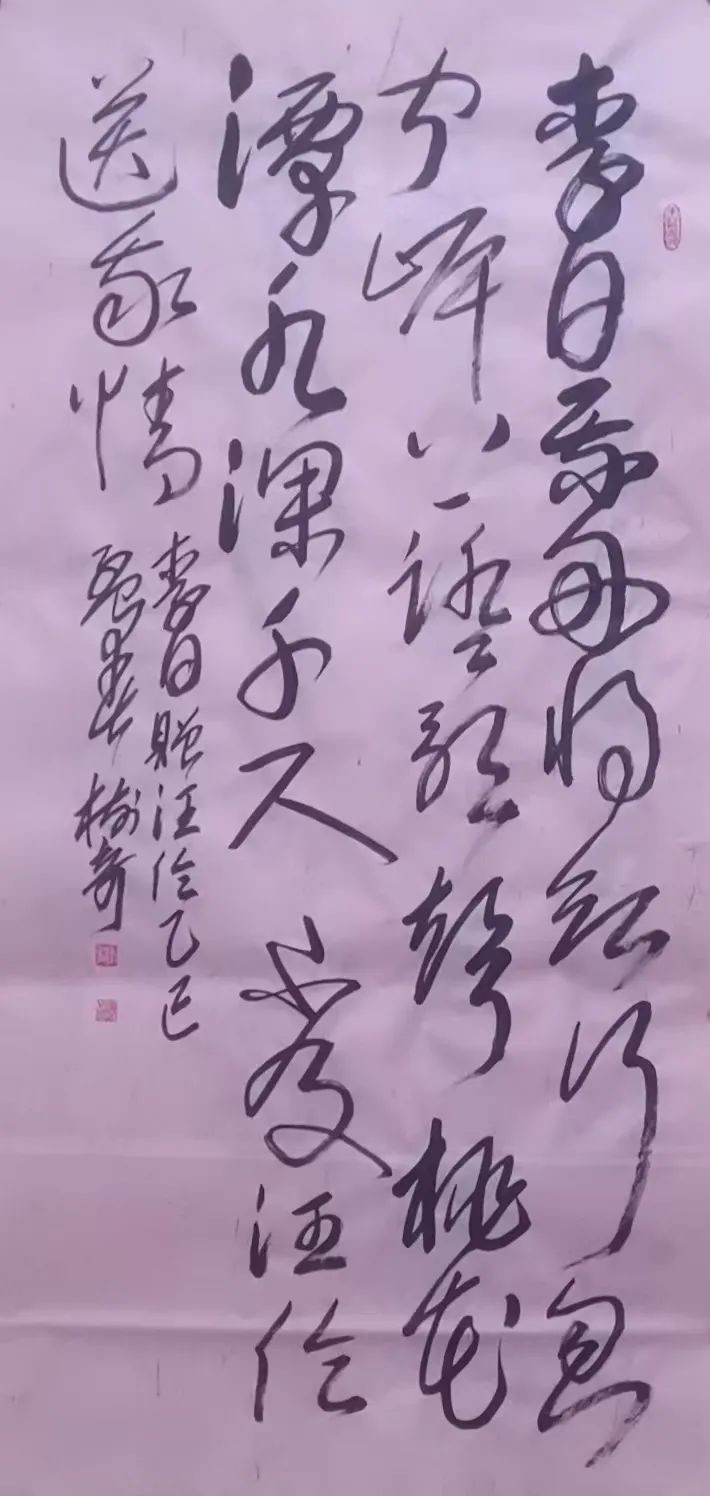 李白乘舟将欲行忽
闻岸上踏歌声桃花
潭水深千尺不及汪伦
送我情
李白赠汪伦乙巳
春树奇